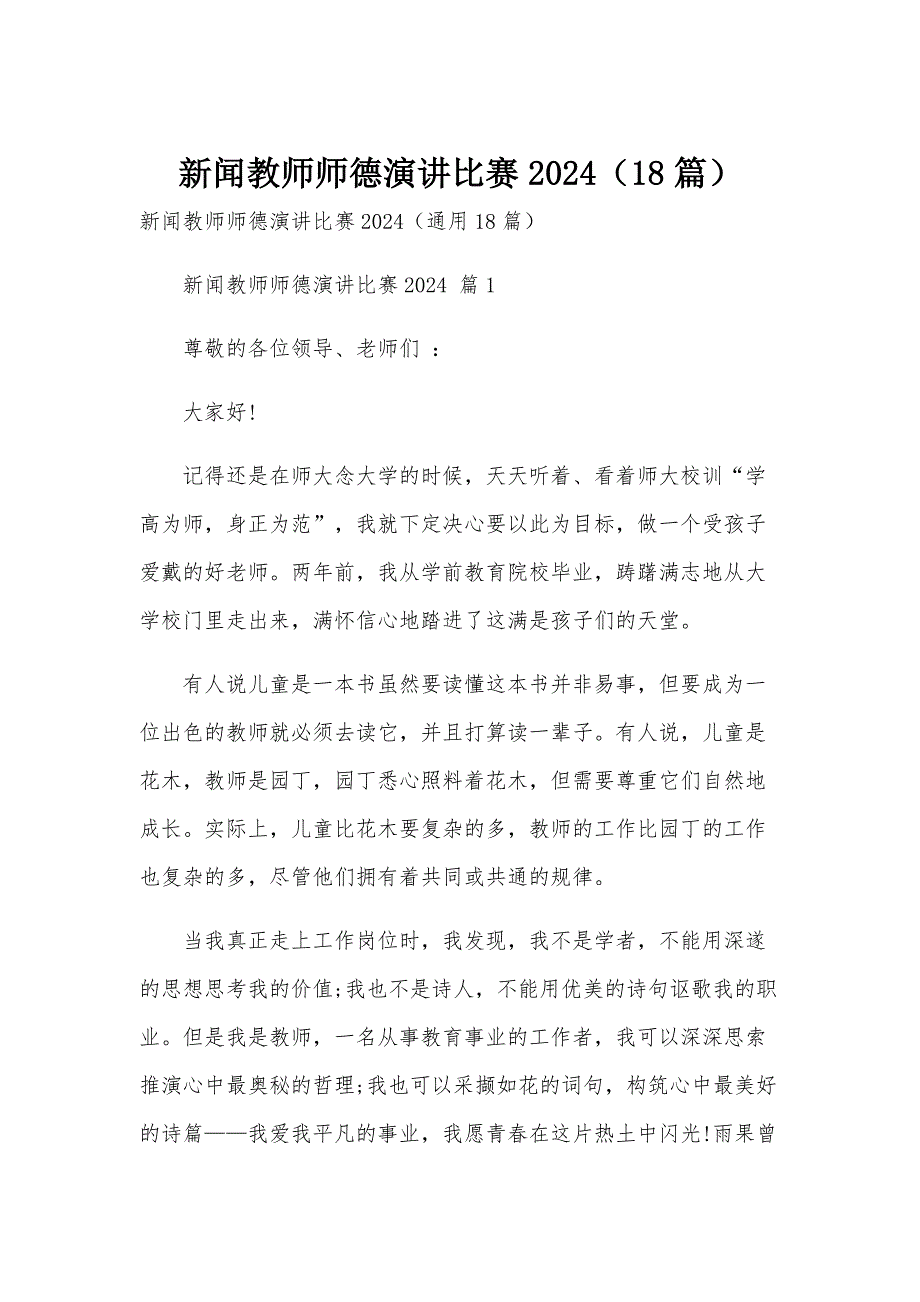 新闻教师师德演讲比赛2024（18篇）
新闻教师师德演讲比赛2024（通用18篇）
新闻教师师德演讲比赛2024 篇1
尊敬的各位领导、老师们 ：
大家好!
记得还是在师大念大学的时候，天天听着、看着师大校训“学
高为师，身正为范”，我就下定决心要以此为目标，做一个受孩子
爱戴的好老师。两年前，我从学前教育院校毕业，踌躇满志地从大
学校门里走出来，满怀信心地踏进了这满是孩子们的天堂。
有人说儿童是一本书虽然要读懂这本书并非易事，但要成为一
位出色的教师就必须去读它，并且打算读一辈子。有人说，儿童是
花木，教师是园丁，园丁悉心照料着花木，但需要尊重它们自然地
成长。实际上，儿童比花木要复杂的多，教师的工作比园丁的工作
也复杂的多，尽管他们拥有着共同或共通的规律。
当我真正走上工作岗位时，我发现，我不是学者，不能用深遂
的思想思考我的价值;我也不是诗人，不能用优美的诗句讴歌我的职
业。但是我是教师，一名从事教育事业的工作者，我可以深深思索
推演心中最奥秘的哲理;我也可以采撷如花的词句，构筑心中最美好
的诗篇——我爱我平凡的事业，我愿青春在这片热土中闪光!雨果曾